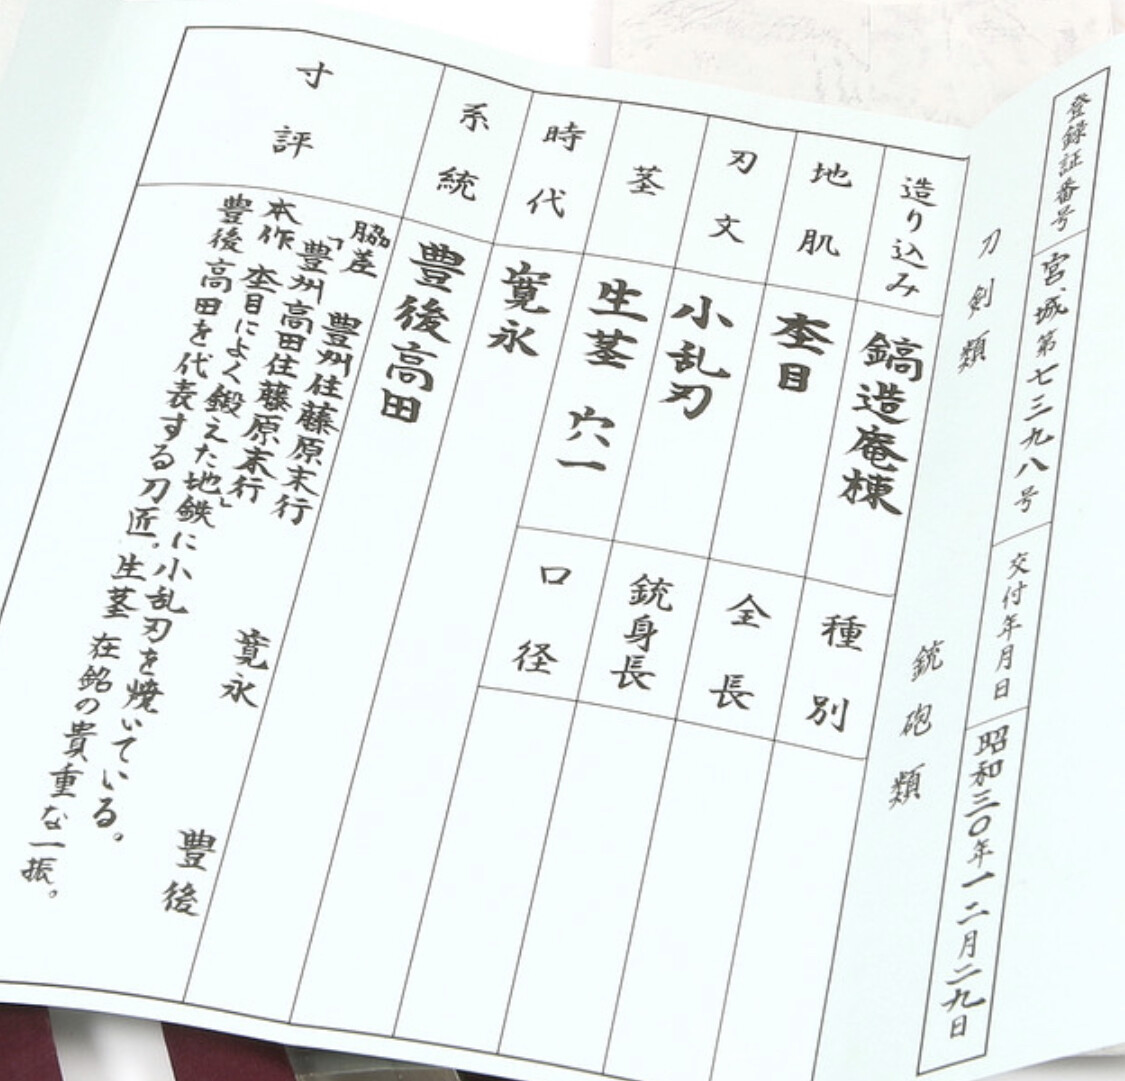 登録証番号 宮城第七三九八号 交付年月日 昭和三〇年一二月二九日
刀剣類 銃砲類
造り込み 鎬造庵棟 種別
地肌 杢目 全長
刃文 小乱刃 銃身長
茎 生茎 穴一 口径
時代 寛永
系統 豊後高田
寸評
脇差 豊州住藤原末行 寛永 豊後
「豊州高田住藤原末行」
本作 杢目によく鍛えた地鉄に小乱刃を焼いている。
豊後高田を代表する刀匠。生茎 在銘の貴重な一振。